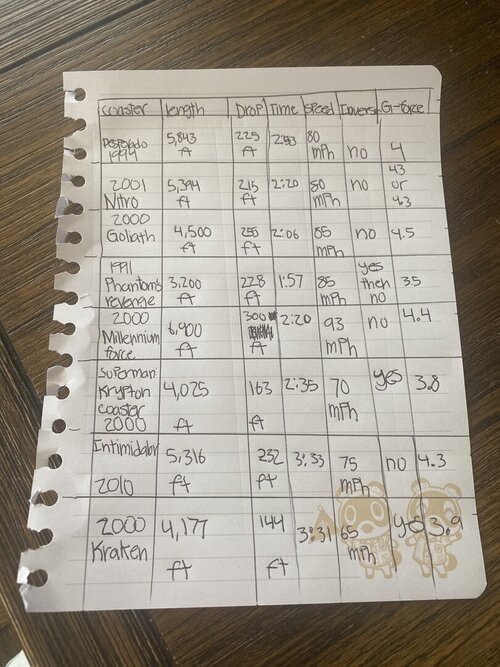 coaster length Drop Time speed Invers G-force
1994 5,843 ft 225 ft 2:43 80 mph no 4
2001 Nitro 5,394 ft 215 ft 2:20 80 mph no 43 or 4.3
2000 Goliath 4,500 ft 255 ft 2:06 85 mph no 4.5
1991 Phantom's revenge 3,200 ft 228 ft 1:57 85 mph yes then no 3.5
2000 Millennium force 6,900 ft 300 ft 2:20 93 mph no 4.4
Superman Krypton coaster 2000 4,025 ft 163 ft 2:35 70 mph yes 3.8
Intimidator 2010 5,316 ft 232 ft 3:33 75 mph no 4.3
2000 Kraken 4,177 ft 144 ft 3:31 65 mph yes 3.9